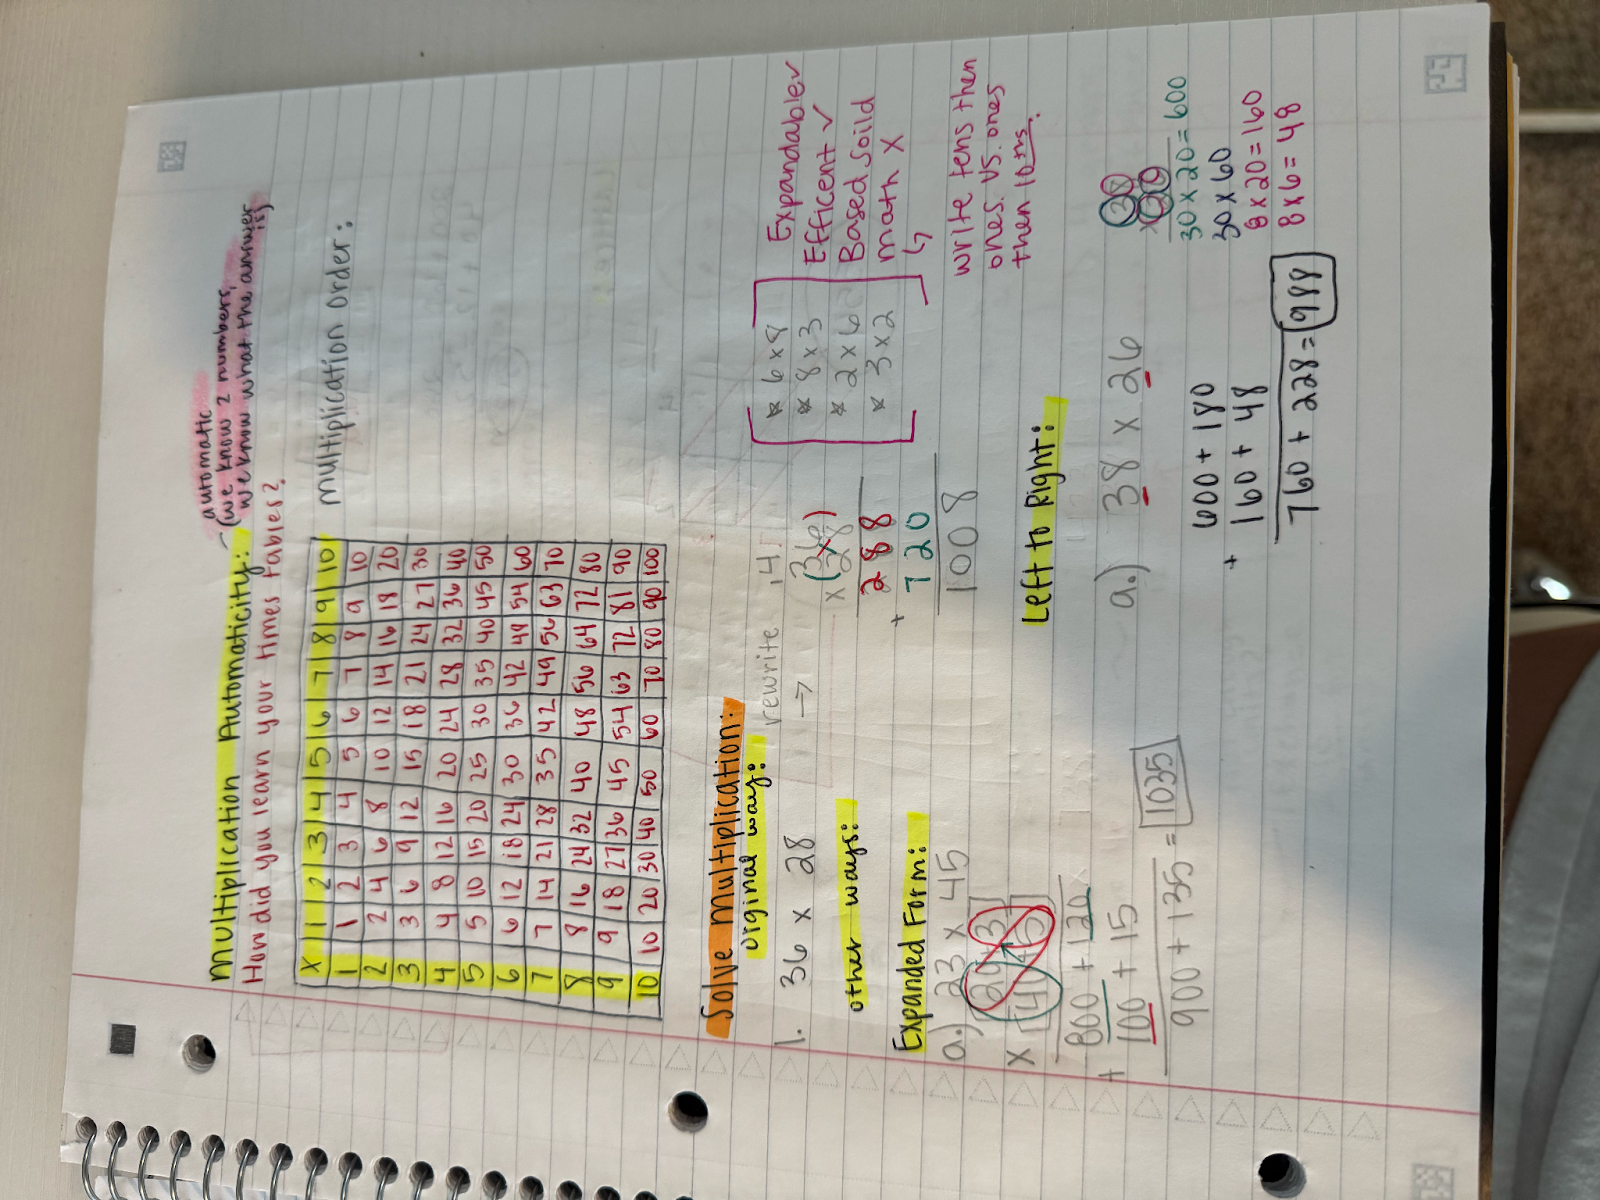 automatic
(we know 2 numbers,
we know what the answer
is)
Multiplication Automaticity:
How did you learn your times tables?
multiplication order:
X 1 2 3 4 5 6 7 8 9 10
1 1 2 3 4 5 6 7 8 9 10
2 2 4 6 8 10 12 14 16 18 20
3 3 6 9 12 15 18 21 24 27 30
4 4 8 12 16 20 24 28 32 36 40
5 5 10 15 20 25 30 35 40 45 50
6 6 12 18 24 30 36 42 48 54 60
7 7 14 21 28 35 42 49 56 63 70
8 8 16 24 32 40 48 56 64 72 80
9 9 18 27 36 45 54 63 72 81 90
10 10 20 30 40 50 60 70 80 90 100
Solve multiplication:
original way:
1. 36 x 28
rewrite
→
14
(36)
x (28
288
+ 720
1008
* 6 x 8
* 8 x 3
* 2 x 6
* 3 x 2
Expandable ✓
Efficent ✓
Based Soild
math X
↳
write tens then
ones. vs. ones
then 10ths.
other ways:
Expanded Form:
a.) 23 x 45
20 + 3
x 40 + 5
800 + 120
+ 100 + 15
900 + 135 = 1035
Left to Right:
a.) 38 x 26
600 + 180
+ 160 + 48
760 + 228 = 988
38
x 26
30 x 20 = 600
30 x 60
8 x 20 = 160
8 x 6 = 48